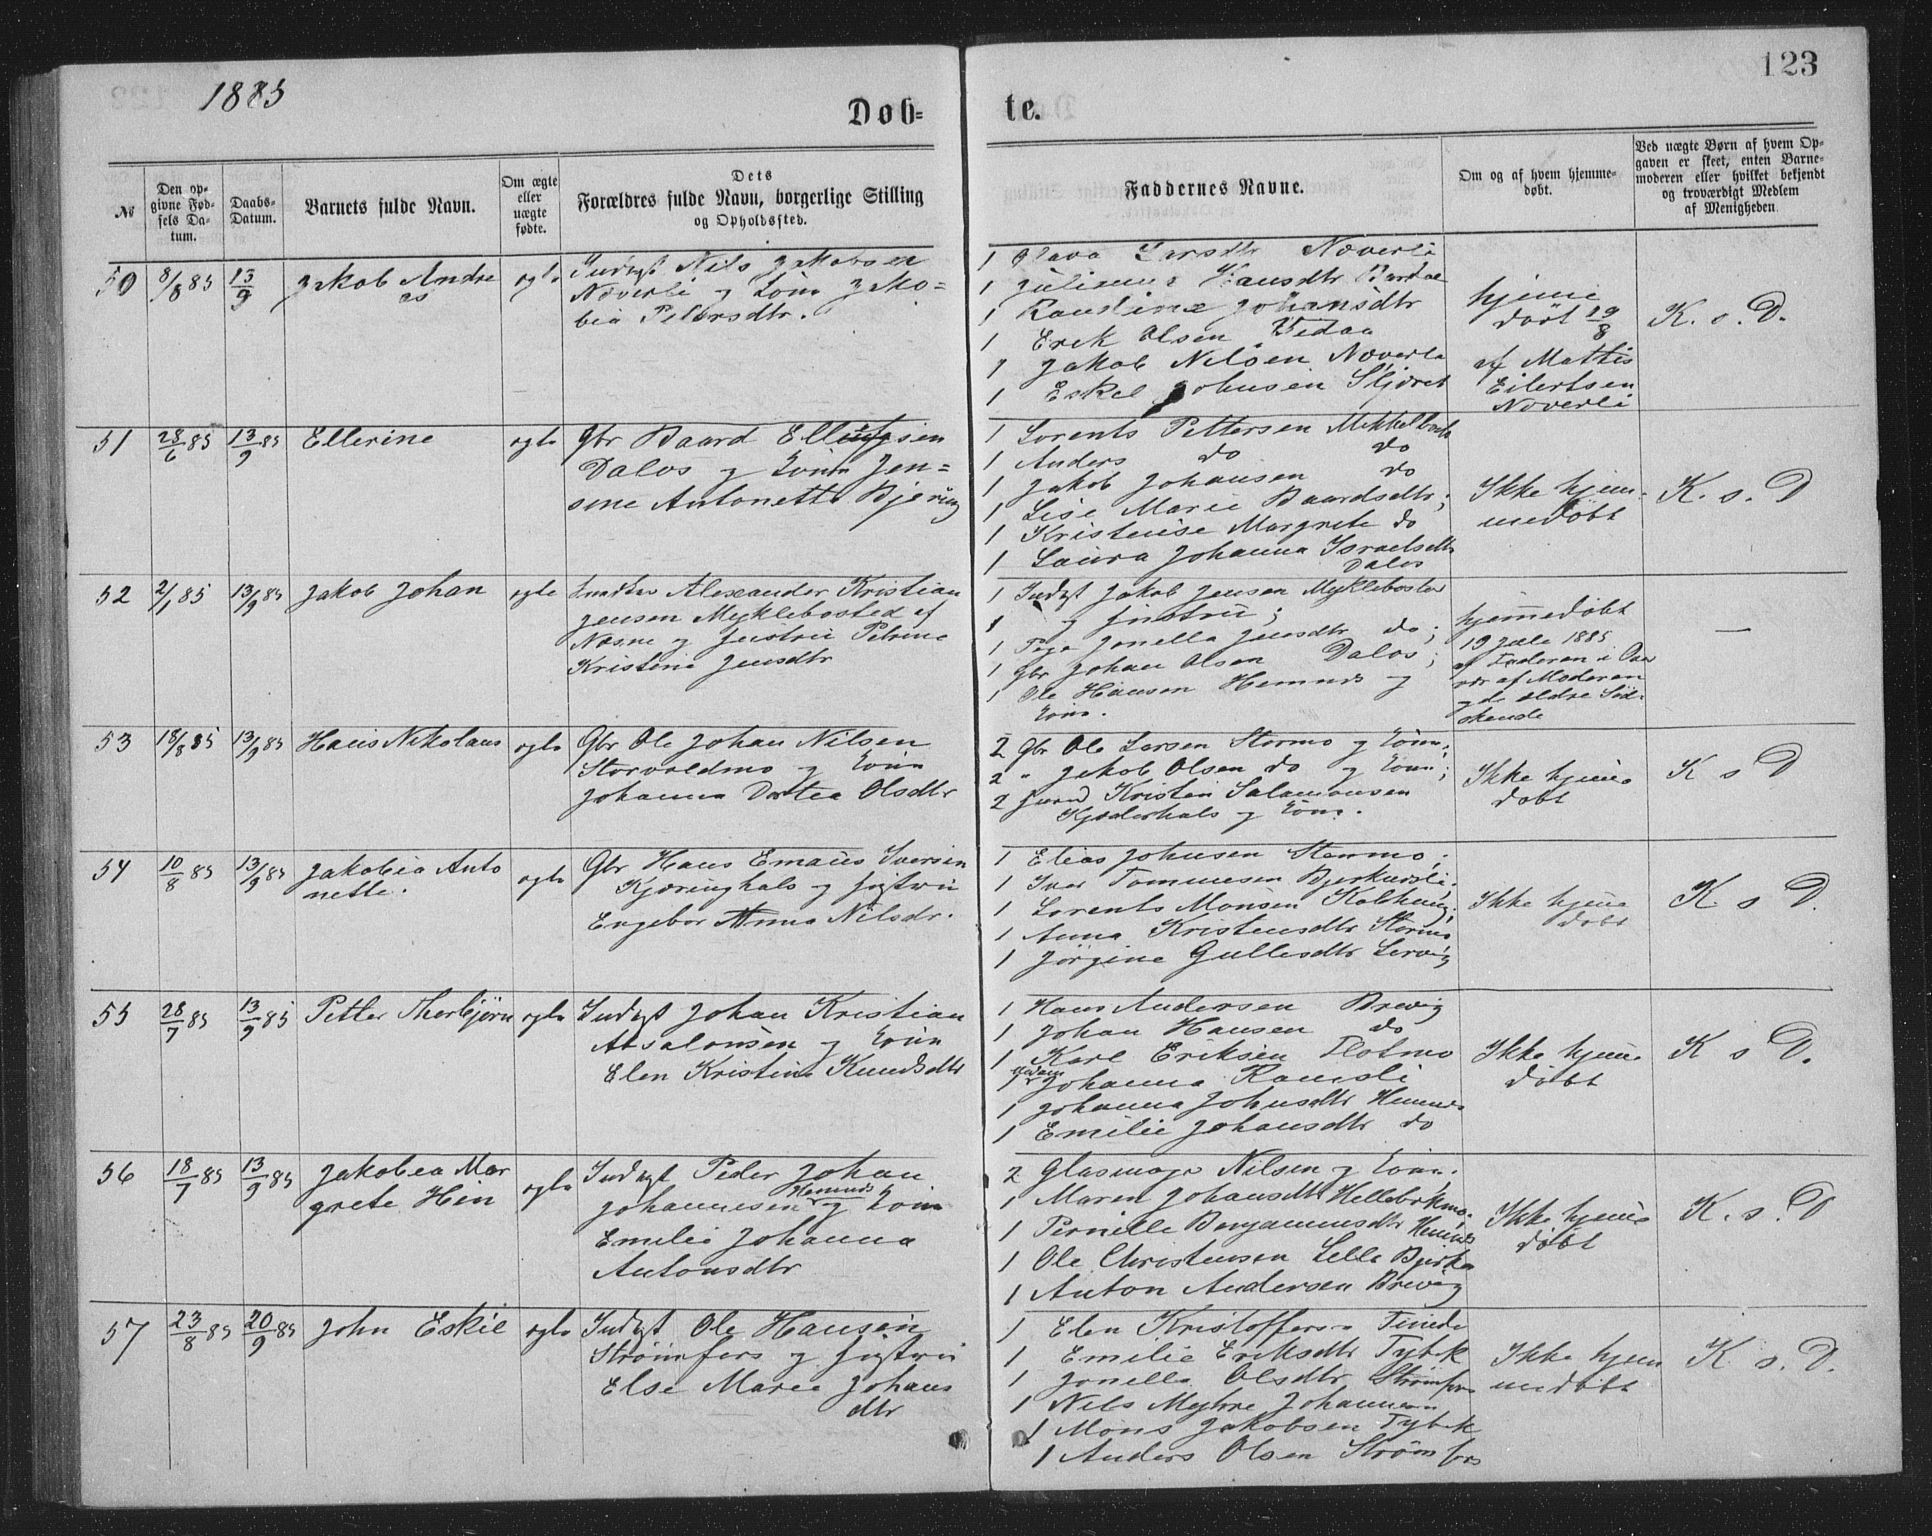 1885
123
Døb-
te.
№
Den op-
givne Fød-
sels Da-
tum.
Daabs-
Datum.
Barnets fulde Navn.
Om ægte
eller
uægte
fødte.
Dets
Forældres fulde Navn, borgerlige Stilling
og Opholdssted.
Faddernes Navne.
Om og af hvem hjemme-
døbt.
Ved uægte Børn af hvem Op-
gaven er skeet, enten Barne-
moderen eller hvilket bekjendt
og troværdigt Medlem
af Menigheden.
50 8/8 85 13/9 Jakob Andre
as
ægte
Inds Nils Jakobsen
Næverli og Kone Jako-
bia Petersdtr.
1 Olava Larsdtr Næverli
1 Juliana Hansdtr
1 Johansdtr
1 Erik Olsen Vedaa
1 Jakob Nilsen Næverli
1 Eskel Johnsen
hjeme
døbt 19/8
af Mattis
Eilertsen
Næverli
K. s. D.
51 28/6 85 13/9 85 Ellerine ægte
Gbr Baard Ellingsen
Dalos og Kone Jen-
sine Antonette Bjering
1 Lorents Pettersen Mikkelbost
1 Anders do do
1 Jakob Johansen do
1 Lise Marie Baardsdtr;
1 Kristense Margrete do
1 Laura Johanna Israelsdtr
Dalos
Ikke hjem-
medøbt
K. s. D
52 2/1 85 13/9 85 Jakob Johan ægte
Alexander Kristian
Jensen Myklebostad af
Nesne og Hustru Petrine
Kristine Jensdtr
1 Inds Jakob Jensen Myklebostad
1 og Hustru;
1 Pige Jonella Jensdtr do;
1 Gbr Johan Olsen Dalos;
1 Ole Hansen Hemnes og
Kone.
hjemmedøbt
19 1885
af Faderen i
vær af Moderen
og de ældre Søs-
kende
—
53 18/8 85 13/9 85 Hans Nikolaus ægte
Gbr Ole Johan Nilsen
Storvoldmo og Kone
Johanna Dortea Olsdtr
2 Gbr Ole Larsen Stormo og Kone;
2 " Jakob Olsen do og Kone;
2 Kristen Salamonsen
Kjæderhals og Kone.
Ikke hjeme
døbt
K s D
54 10/8 85 13/9 85 Jakobia Anto
nette.
ægte
Gbr Hans Emaus Iversen
Kjæringhals og Hustru
Engebor Anna Nilsdr.
1 Elias Johnsen Stormo;
1 Iver Tommesen
1 Lorents Monsen
1 Anna Kristensdtr Stormo
1 Jørgine Gullesdtr Lervig
Ikke hjeme
døbt
K. s D.
55 28/7 85 13/9 85 Petter Thorbjørn ægte
Inds Johan Kristian
Absalonsen og Kone
Elen Kristine Knudsdtr
1 Hans Andersen Brevig
1 Johan Hansen do
1 Karl Eriksen Flotmo
1 Johanna Ramsli
1 Johanna Johnsdtr Hemnes
1 Emilie Johansdtr do
Ikke hjeme
døbt
K s D.
56 18/7 85 13/9 85 Jakobea Mar
grete Hin
ægte
Inds Peder Johan
Johannesen Hemnes og Kone
Emilie Johanna
Antonsdtr
2 Glasmager Nilsen og Kone;
1 Maren Johansdtr
1 Pernille Benjaminsdtr Hemnes
1 Ole Christensen Lelle
1 Anton Andersen Brevig
Ikke hjeme
døbt
K. s. D
57 23/8 85 20/9 85 John Eskil ægte
Inds Ole Hansen
Strømfors og Hustru
Else Marea Johans
dtr
1 Elen Kristoffers
1 Emilie Eriksdtr
1 Jonella Olsdtr Strømfors
1 Nils Myhre Johannesen
1 Mons Jakobsen
1 Anders Olsen Strømfors
Ikke hjem
medøbt
K s. D.